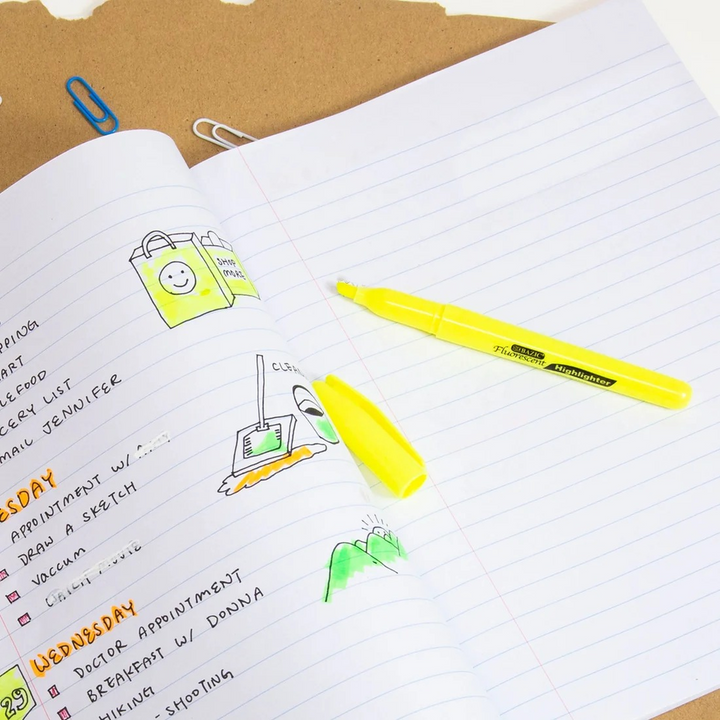 SHOP
MORE
PPING
ART
LEFOOD
CERY LIST
MAIL JENNIFER
CLEA
ESDAY
APPOINTMENT W/
DRAW A SKETCH
VACCUM
WEDNESDAY
DOCTOR APPOINTMENT
BREAKFAST W/ DONNA
HIKING
- SHOOTING
29
BAZIC
Fluorescent Highlighter